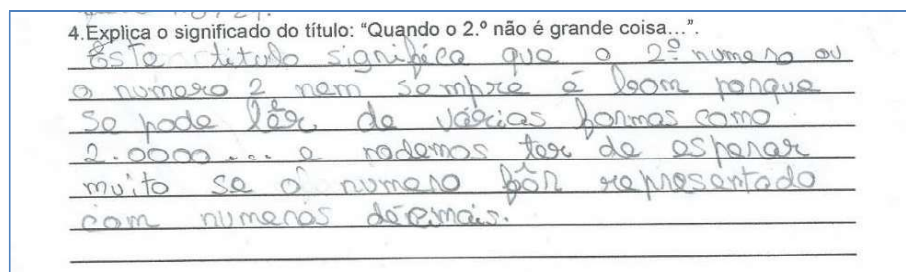 4.Explica o significado do título: “Quando o 2.º não é grande coisa...”.
Este titulo significa que o 2º numero ou
o numero 2 nem sempre é bom porque
se pode lêr de várias formas como
2.0000... e podemos ter de esperar
muito se o numero fôr representado
com numeros décimais.